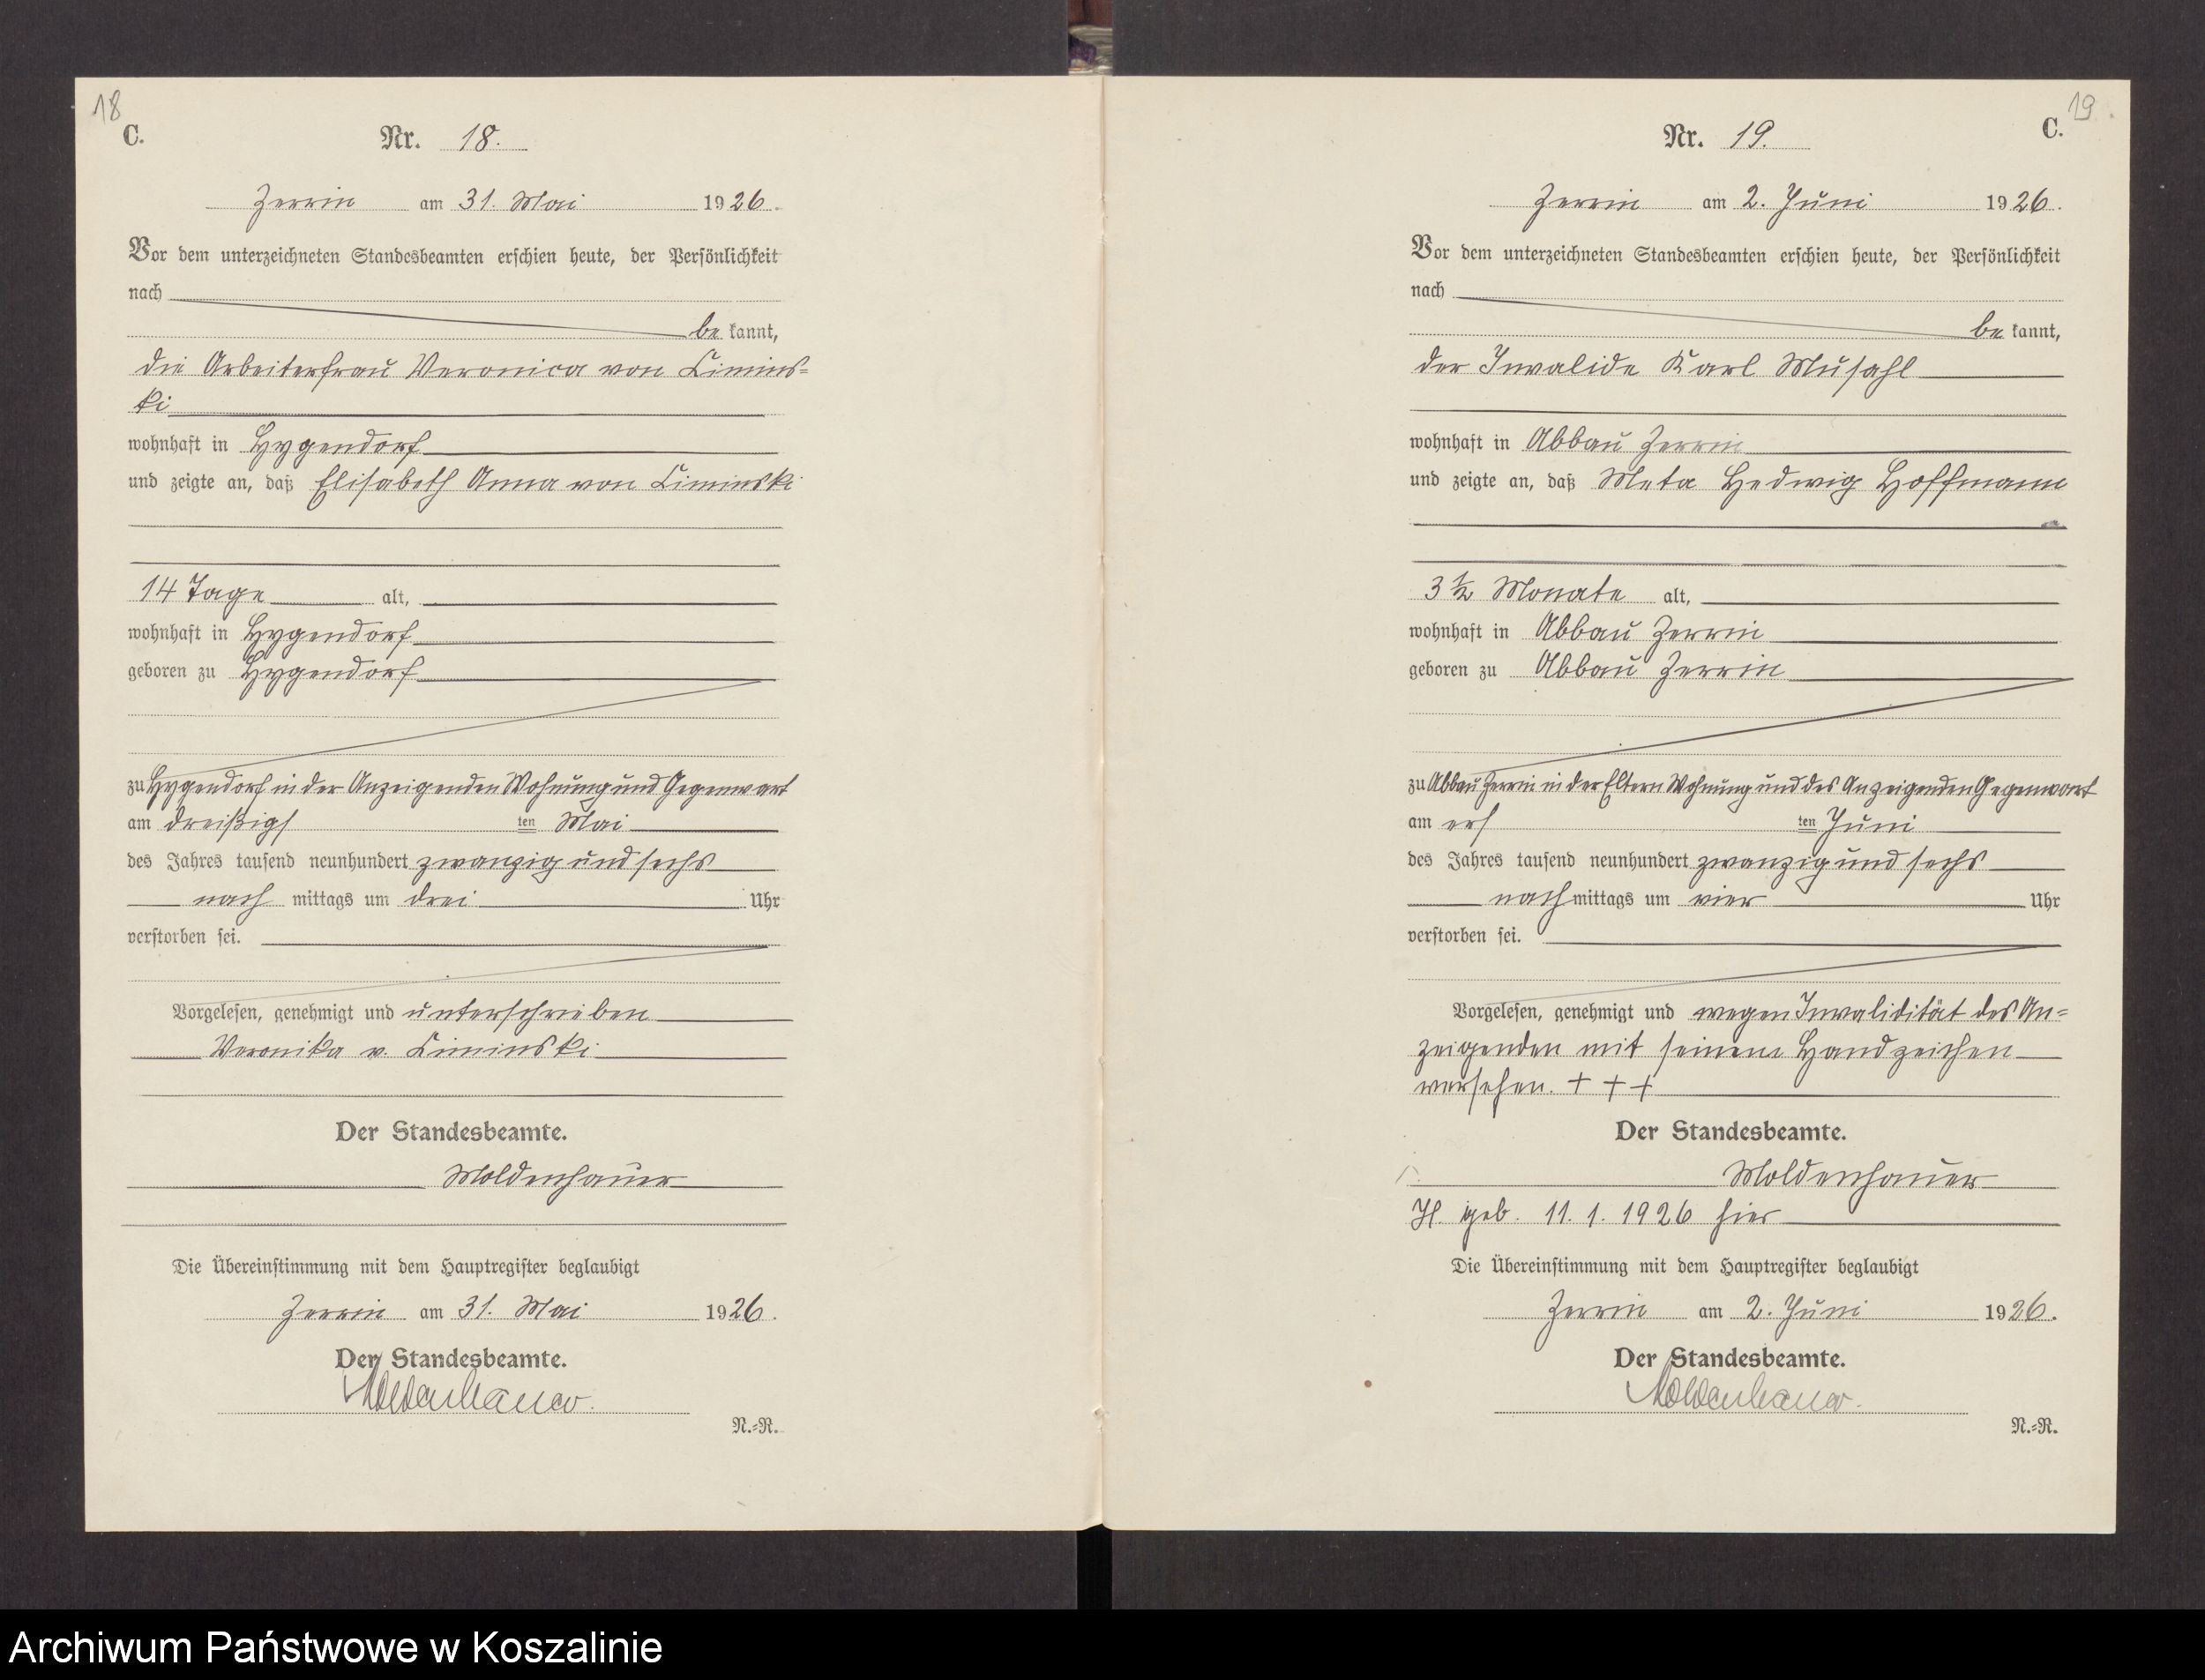 18
C.
Nr. 18.
Zerrin am 31. Mai 1926.
Vor dem unterzeichneten Standesbeamten erschien heute, der Persönlichkeit
nach
be kannt,
die Arbeiterfrau Veronica von Cimins=
ki
wohnhaft in Hygendorf
und zeigte an, daß Elisabeth Anna von Ciminski
14 Tage alt,
wohnhaft in Hygendorf
geboren zu Hygendorf
zu Hygendorf in der Anzeigenden Wohnung und Gegenwart
am dreißigs ten Mai
des Jahres tausend neunhundert zwanzig und sechs
nach mittags um drei Uhr
verstorben sei.
Vorgelesen, genehmigt und unterschrieben
Veronika v. Ciminski
Der Standesbeamte.
Moldenhauer
Die Übereinstimmung mit dem Hauptregister beglaubigt
Zerrin am 31. Mai 1926.
Der Standesbeamte.
Moldenhauer.
N.=R.
19
C.
Nr. 19.
Zerrin am 2. Juni 1926.
Vor dem unterzeichneten Standesbeamten erschien heute, der Persönlichkeit
nach
be kannt,
der Invalide Karl Musahl
wohnhaft in Abbau Zerrin
und zeigte an, daß Meta Hedwig Hoffmann
3 1/2 Monate alt,
wohnhaft in Abbau Zerrin
geboren zu Abbau Zerrin
zu Abbau Zerrin in der Eltern Wohnung und des Anzeigenden Gegenwart
am ers ten Juni
des Jahres tausend neunhundert zwanzig und sechs
nach mittags um vier Uhr
verstorben sei.
Vorgelesen, genehmigt und wegen Invalidität des An=
zeigenden mit seinem Handzeichen
versehen. + + +
Der Standesbeamte.
Moldenhauer
H. geb. 11. 1. 1926 hier
Die Übereinstimmung mit dem Hauptregister beglaubigt
Zerrin am 2. Juni 1926.
Der Standesbeamte.
Moldenhauer.
N.=R.
Archiwum Państwowe w Koszalinie